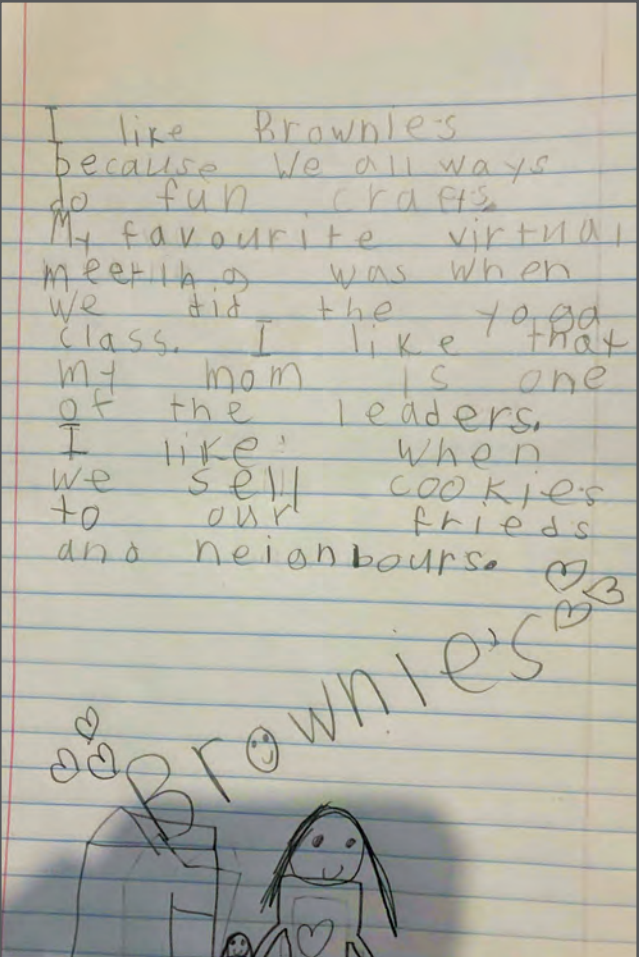 I like Brownie's
because We all ways
do fun crafts.
My favourite virtual
meeting was when
we did the yoga
class. I like that
my mom is one
of the leaders.
I like when
we sell cookies
to our frieds
and neighbours.
Brownie's